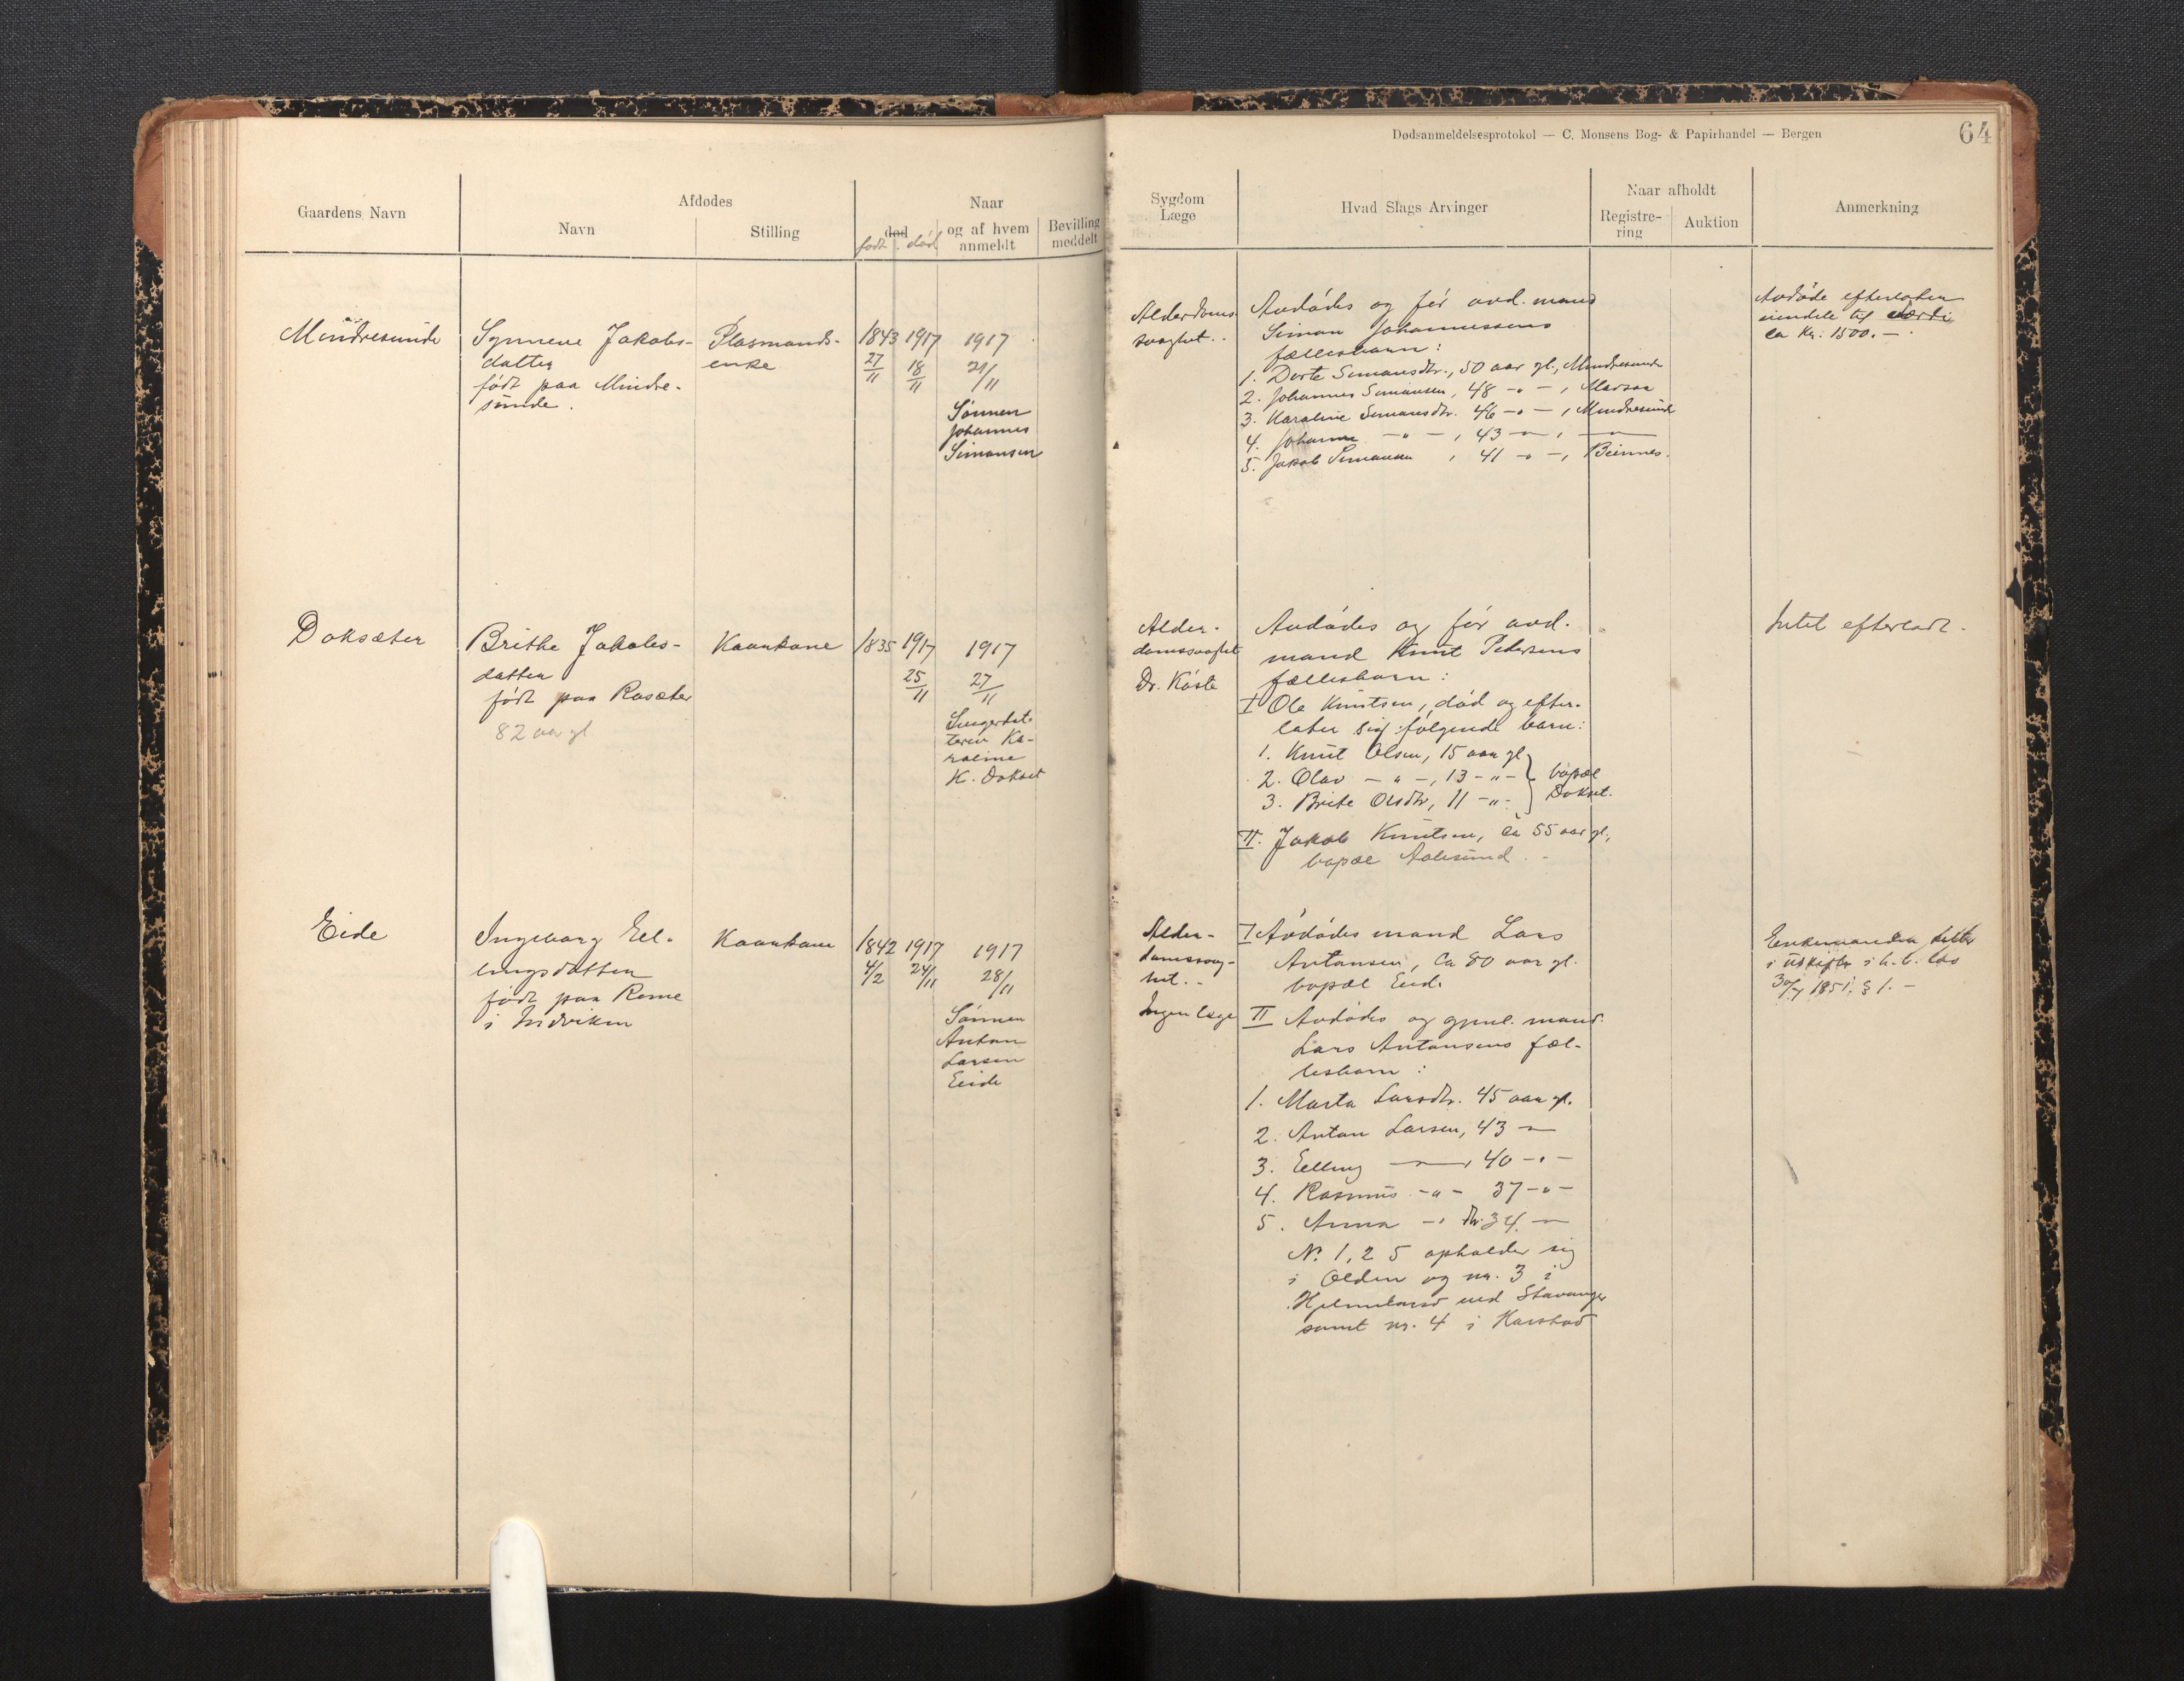 Dødsanmeldelsesprotokol — C. Monsens Bog- & Papirhandel — Bergen
64
Gaardens Navn
Afdødes
Navn
Stilling
Naar
død
født død
og af hvem
anmeldt
Bevilling
meddelt
Sygdom
Læge
Hvad Slags Arvinger
Naar afholdt
Registre-
ring
Auktion
Anmerkning
Mindresunde
Synneve Jakobs-
datter
født paa Mindre-
sunde.
Plasmands-
enke
1843 1917 1917
27/11 18/11 21/11
Sønnen
Johannes
Simonsen
Alderdoms-
svaghet.
Avdødes og før avd. mand
Simon Johannessens
fællesbarn:
1. Dorte Simonsdtr., 50 aar gl., Mindresunde
2. Johannes Simonsen, 48 -"-,
3. Karoline Simonsdtr. 46 -"-, Mindresunde
4. Johanne -"-, 43 -"-, -"-
5. Jakob Simonsen, 41 -"-,
Avdøde efterlater
eiendele til værdi
ca Kr. 1500.-
Doksæter
Brithe Jakobs-
datter
født paa Rasæter
82 aar gl
Kaarkone
1835 1917 1917
25/11 27/11
K. Dokset
Alder-
domssvaghet
Dr. Kaste
Avdødes og før avd.
mand Knut Pedersens
fællesbarn:
I Ole Knutsen, død og efter-
later sig følgende barn:
1. Knut Olsen, 15 aar gl
2. Olav -"-, 13 -"-
3. Brite Olsdtr, 11 -"-
bopæl
Dokset.
II. Jakob Knutsen, ca 55 aar gl,
bopæl Aalesund.
Intet efterladt.
Eide
Ingeborg Ell-
ingsdatter
født paa Reme
i Indviken
Kaarkone
1842 1917 1917
4/2 24/11 28/11
Sønnen
Anton
Larsen
Eide
Alder-
domssvag-
het.
Ingen læge
I Avdødes mand Lars
Antonsen, ca 80 aar gl.
bopæl Eide
II Avdødes og gjenl. mand
Lars Antonsens fæl-
lesbarn:
1. Marta Larsdtr. 45 aar gl.
2. Anton Larsen, 43 -"-
3. Elling -"-, 40 -"-
4. Rasmus -"- 37 -"-
5. Anna -"- dtr. 34. -"-
No. 1, 2 5 opholder sig
i Olden og nr. 3 i
ved Stavanger
samt nr. 4 i Harstad
Enkemanden sitter
i uskifte i h. t. lov
30/7 1851, § 1. -